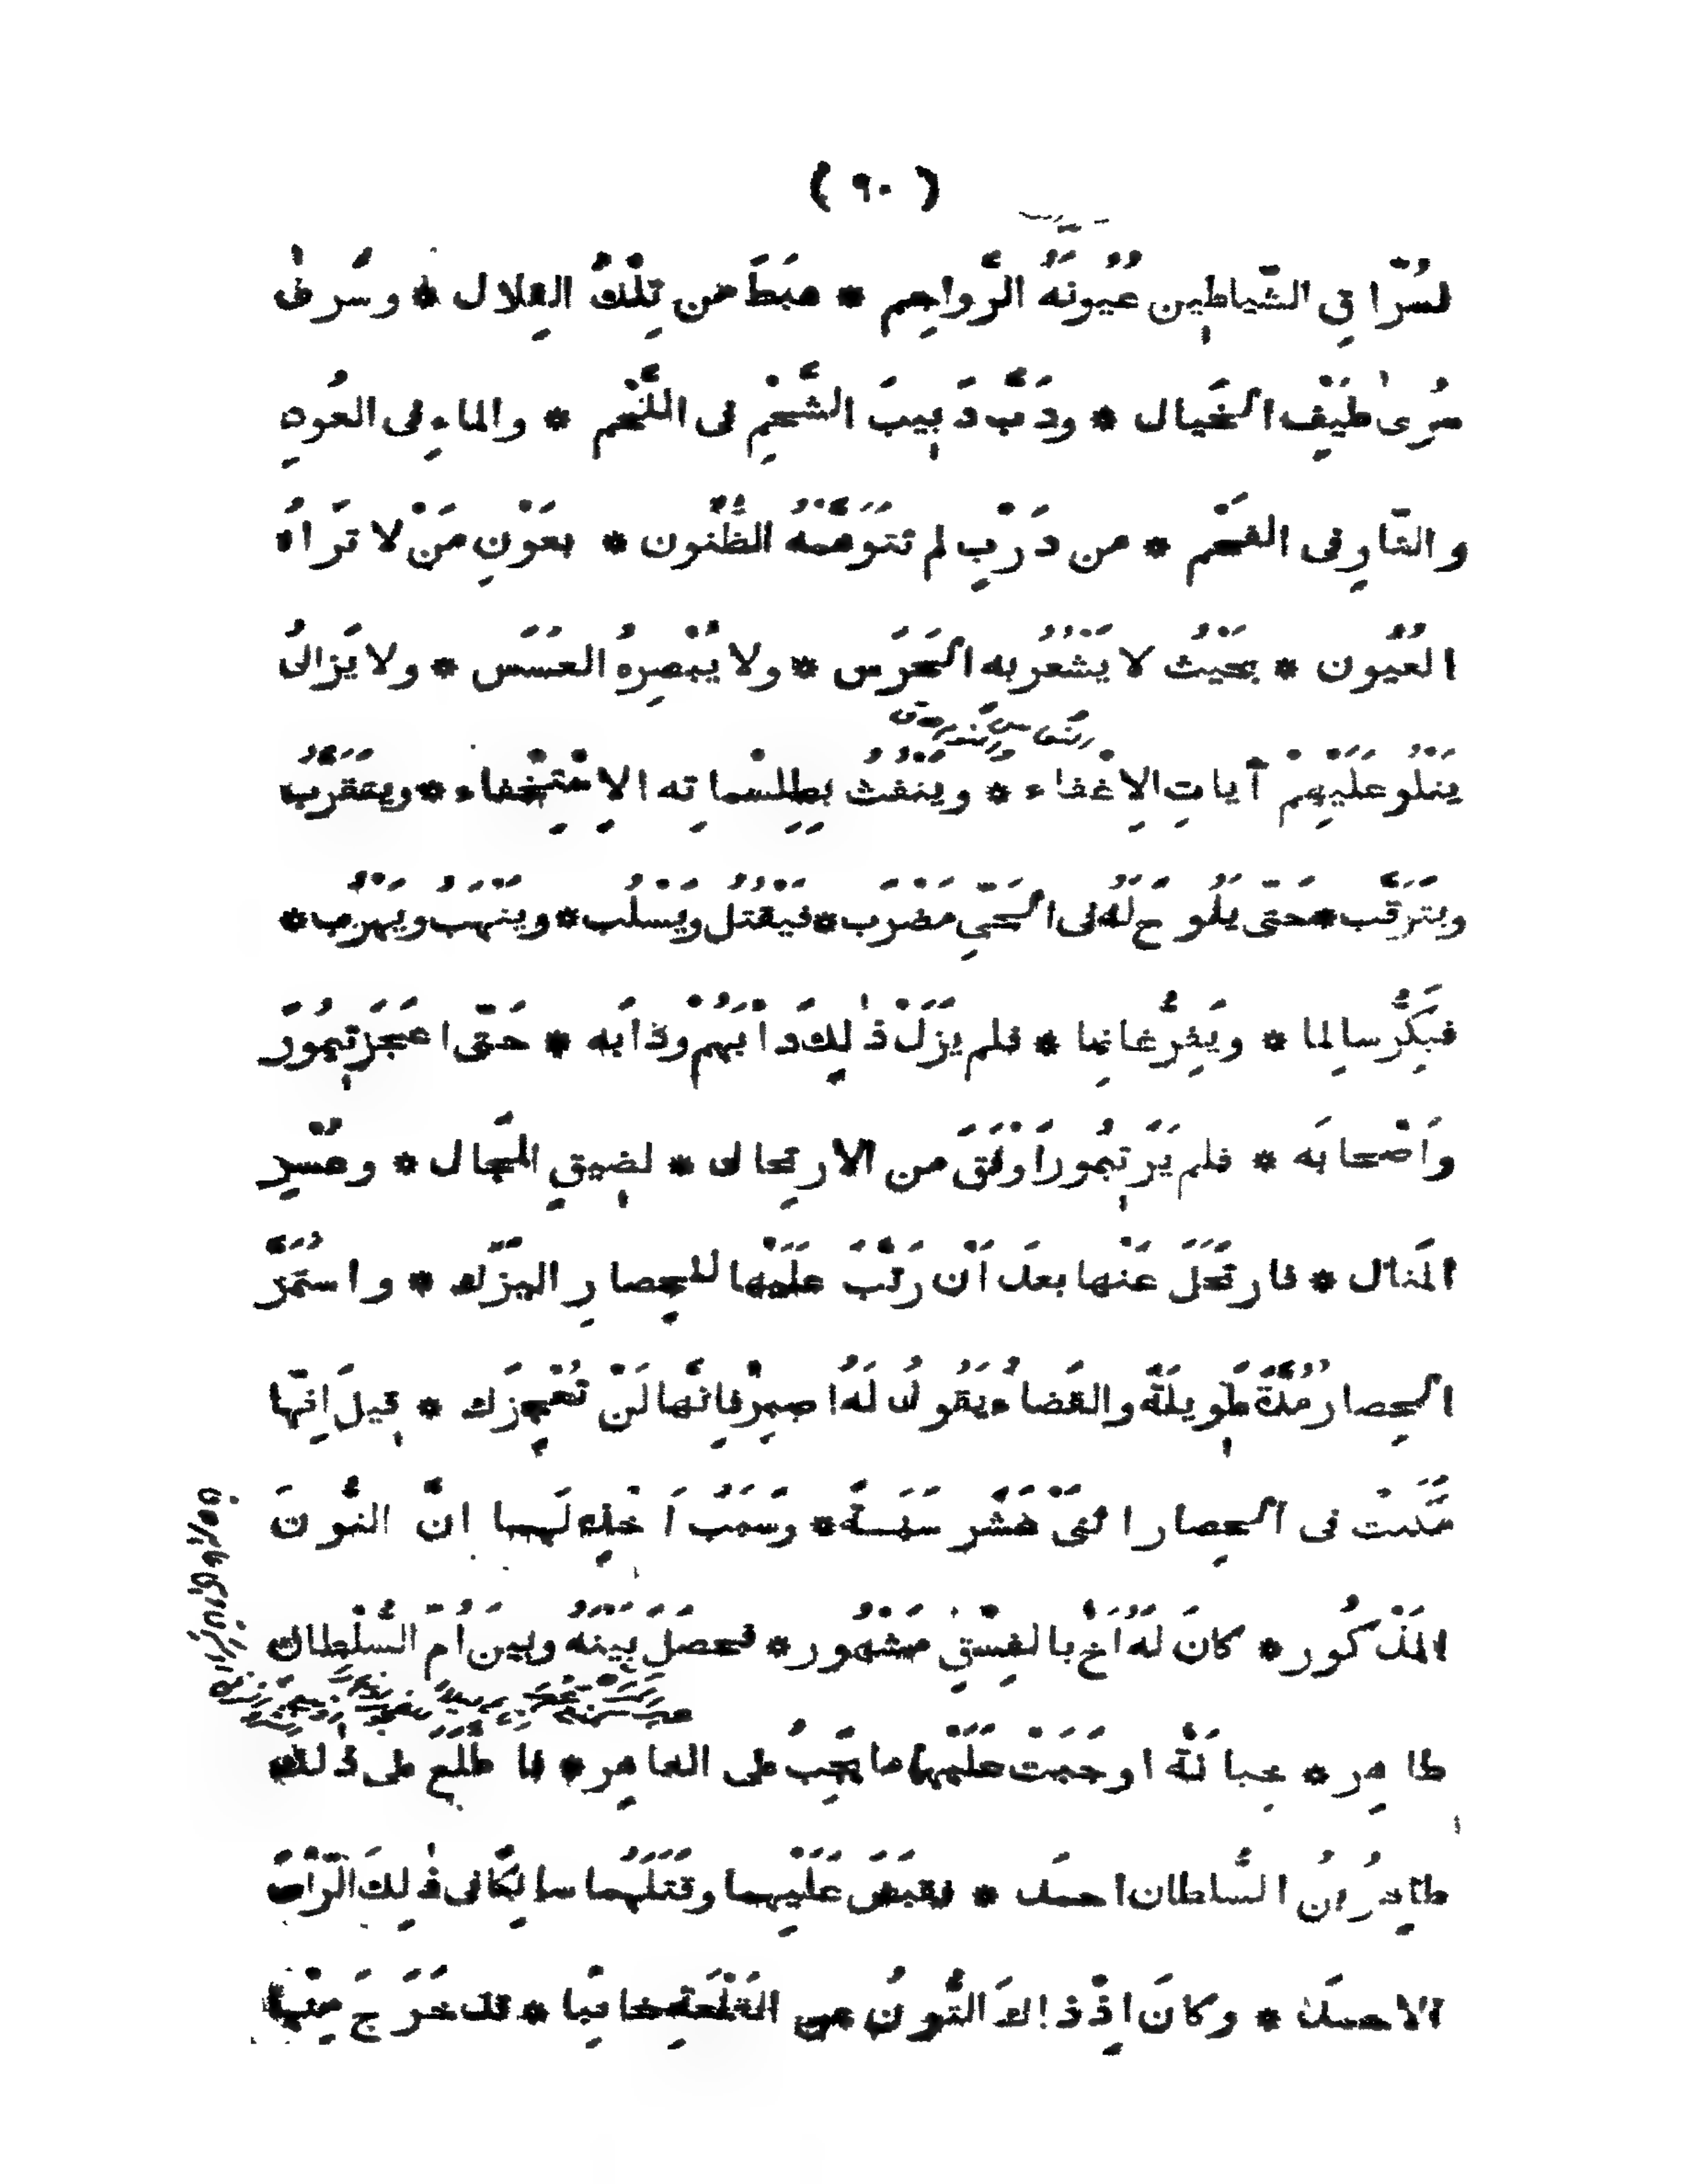 ( ٩٠ )
لسُرّاقِ الشّياطين عُيُونَهُ الرَّواجِم * هبَطَ من تِلْكَ القِلال * وسَرى
سُرىٰ طَيْفِ الخَيال * ودَبَّ دَبيبَ الشَّحْمِ فى اللَّحْم * والماءِ فى العُودِ
والنّارِ فى الفَحْم * من دَرْبٍ لم تتوَهَّمْهُ الظُّنون * بعَوْنِ مَنْ لا تَراهُ
العُيُون * بحَيْثُ لا يَشْعُرُ به الحَرَس * ولا يُبْصِرهُ العسَس * ولا يَزالُ
يَتْلُو عَلَيْهِمْ آياتِ الاِغْفاء * ويَنْفُثُ بطِلِسْماته الاِسْتِخْفاء * ويتقَرَّبُ
ويَتَرَقَّب * حَتّى يَلُوحَ لَهُ فى الحَىِّ مَضْرَب * فيَقْتُل ويَسْلُب * ويَنْهَبُ ويَهْرُب *
فيَكِرُّ سالِما * ويَفِرُّ غانِما * فلم يَزَلْ ذٰلِكَ دَأْبَهُمْ ودَأبَه * حَتّى اعْجَزَ تيمُورَ
وَاَصْحابَه * فلم يَرَ تيمُورُ اَوْفَقَ من الارتِحال * لضيقِ المَجال * وعُسْرِ
المَنال * فارتَحَلَ عَنْها بعدَ اَنْ رَتَّبَ عَلَيْها للحِصارِ اليَزَك * واستَمَرَّ
الحِصارُ مُدَّةً طَويلَةً والقَضاءُ يَقُولُ لَهُ اصبِرْ فاِنَّها لَنْ تُعْجِزَك * قيلَ اِنّها
مَكَثَتْ فى الحِصار اثنَىْ عَشَرَ سَنَةً * وسَبَبُ اَخْذِهِ لَها انَّ التُّونَ
المَذْكُور * كانَ لَهُ اَخٌ بالفِسْقِ مَشْهُور * فحصَلَ بَيْنَهُ وبين اُمّ السُّلْطان
طاهِر * خِيانَةٌ اوجَبَتْ عَلَيْها ما يَجِبُ على العاهِر * فاطَّلَعَ على ذٰلك
طاهِرُ بنُ السُّلطان احمَد * فقبَضَ عَلَيْهِما وقَتَلَهُما سالِكًا فى ذٰلِكَ الرَّأىَ
الاحمَد * وكانَ اِذْ ذاكَ التُّونُ عن القَلْعَةِ غائبا * قد خَرَجَ مِنْها